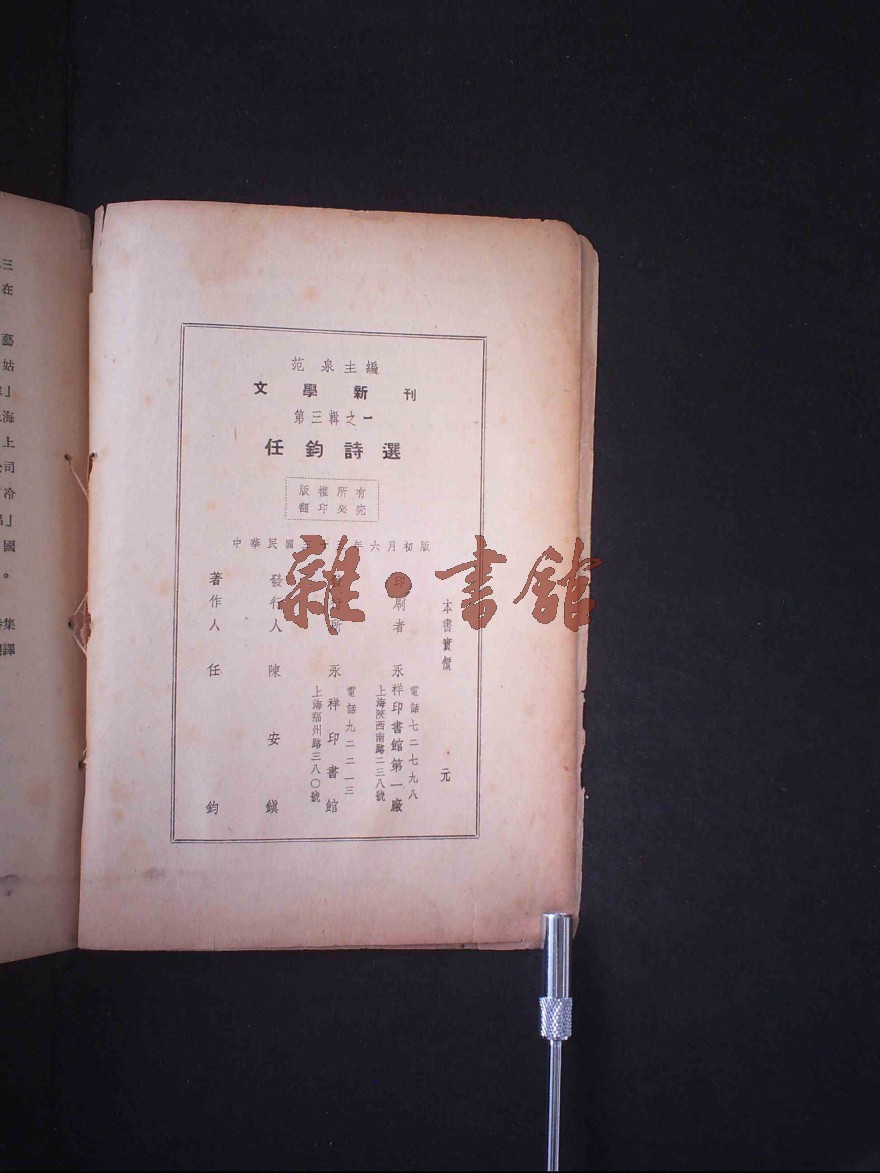 范泉主編
文學新刊
第三輯之一
任鈞詩選
版權所有
翻印必究
中華民國三十 年六月初版
本書實價 元
印刷者 永祥印書館第一廠
電話七二七九八
上海陝西南路二三八號
發行所 永祥印書館
電話九二二一三
上海福州路三八〇號
發行人 陳安鎮
著作人 任鈞
雜·書館
三
在
藝
姑
」
海
上
司
冷
」
國
。
集
譯